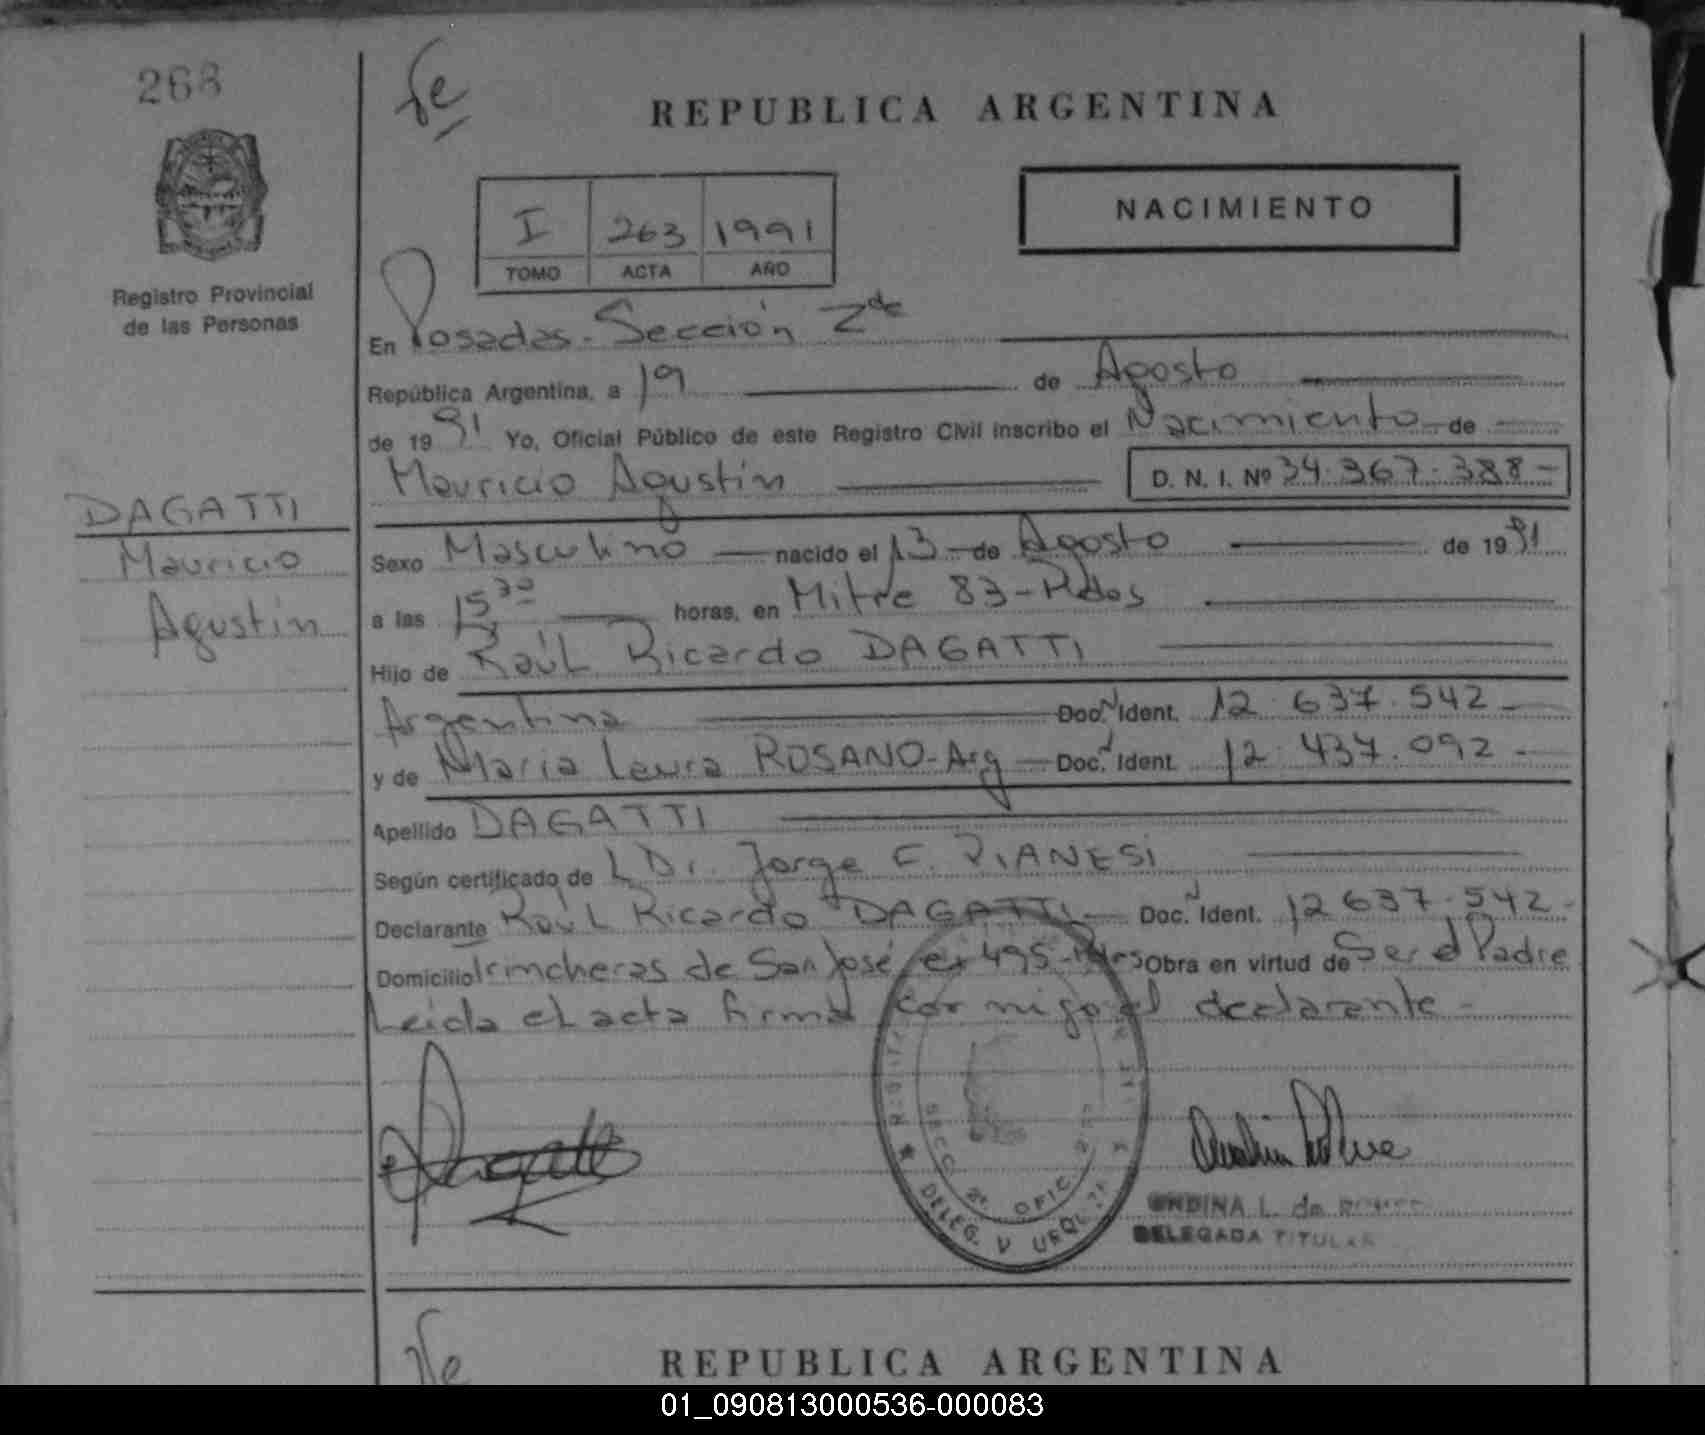 268
fe
REPUBLICA ARGENTINA
I 263 1991
TOMO ACTA AÑO
NACIMIENTO
Registro Provincial
de las Personas
En Posadas - Sección 2da
República Argentina, a 19 de Agosto
de 1991 Yo, Oficial Público de este Registro Civil inscribo el Nacimiento de
Mauricio Agustín D. N. I. Nº 34.367.388-
DAGATTI
Mauricio
Agustín
Sexo Masculino nacido el 13 de Agosto de 1991
a las 15 30 horas, en Mitre 83 - Pdas
Hijo de Raúl Ricardo DAGATTI
Argentina Doc. Ident. 12.637.542-
y de María Laura ROSANO - Arg Doc. Ident. 12.437.092-
Apellido DAGATTI
Según certificado de L Dr. Jorge C. PIANESI
Declarante Raúl Ricardo DAGATTI Doc. Ident. 12637.542-
Domicilio Trincheras de San José 495 Obra en virtud de Ser el Padre
Leída el acta firma conmigo el declarante-
SECC. 2a. OFIC.
DELEG. V URQUIZA
ONDINA L. de
DELEGADA TITULAR
fe
REPUBLICA ARGENTINA
01_090813000536-000083